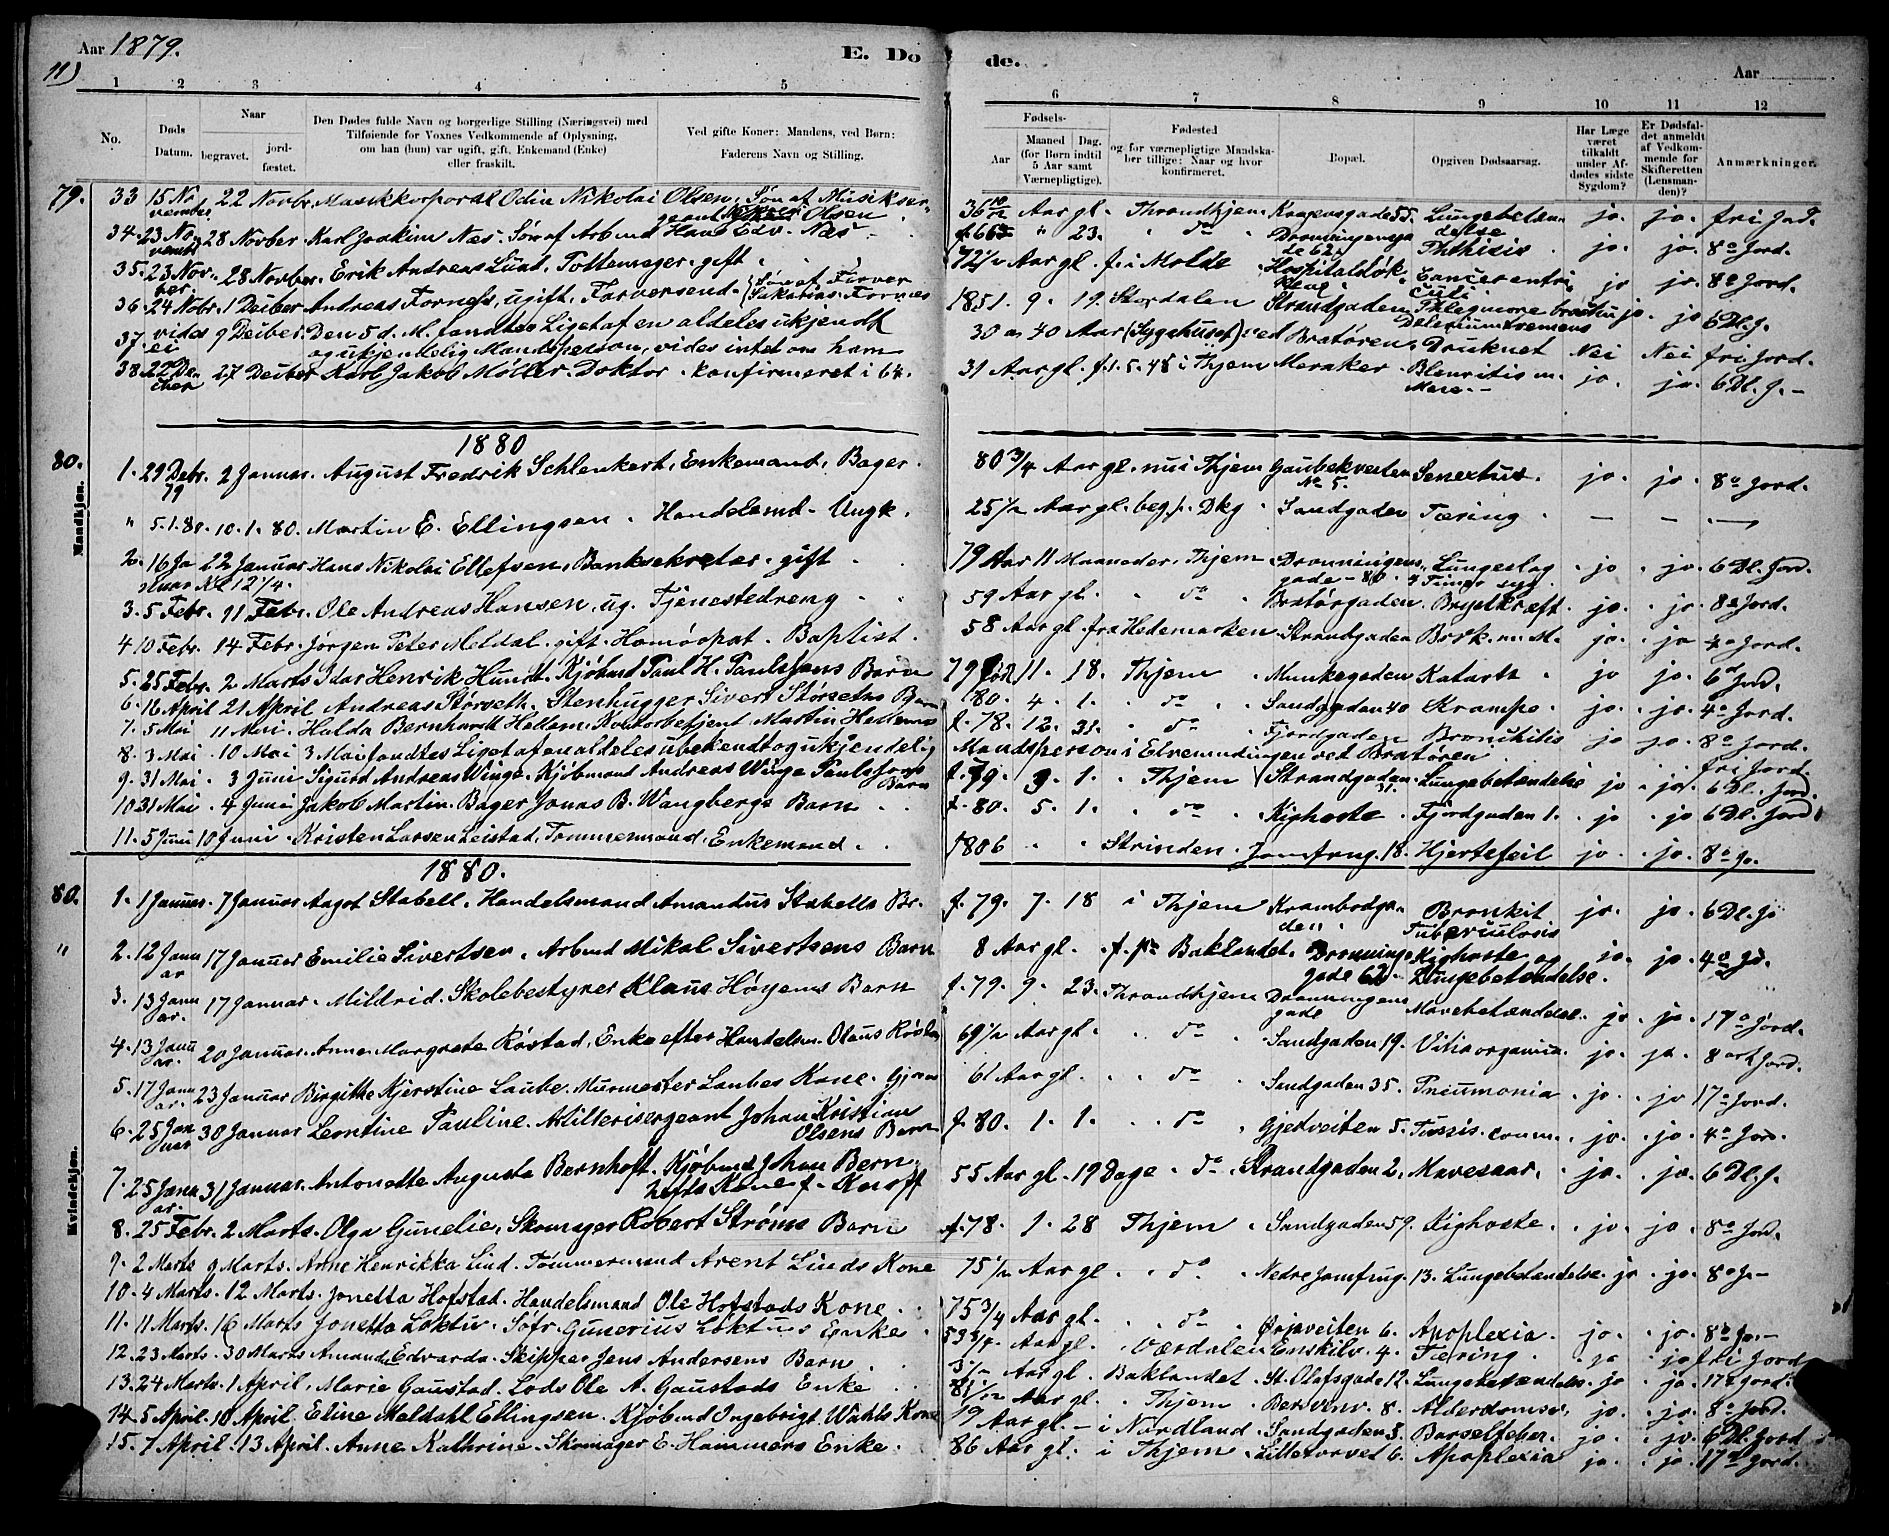 Aar 1879. E. Dö de. Aar
11)
1 2 3 4 5 6 7 8 9 10 11 12
No. Döds Datum. Naar begravet. jordfæstet. Den Dödes fulde Navn og borgerlige Stilling (Næringsvei) med Tilföiende for Voxnes Vedkommende af Oplysning, om han (hun) var ugift, gift, Enkemand (Enke) eller fraskilt. Ved gifte Koner: Mandens, ved Börn: Faderens Navn og Stilling. Fødsels- Aar Maaned Dag. (for Børn indtil 5 Aar samt Værnepligtige). Fødested og for værnepligtige Mandskaber tillige: Naar og hvor konfirmeret. Bopæl. Opgiven Dødsaarsag. Har Læge været tilkaldt under Afdødes sidste Sygdom? Er Dødsfaldet anmeldt af Vedkommende for Skifteretten (Lensmanden)? Anmærkninger.
79. 33 15 November 22 Novbr. Musikkorporal Odin Nikolai Olsen, Søn af Musiksergeant Olsen 36 10/12 Aar gl. Throndhjem Kongensgade 55. Lungebetændelse jo. jo. fri Jord.
34. 23 November 28 Novber Karl Joakim Næs. Søn af Arbmd Hans Edv. Næs " 23. do Dronningensgade 62. Phthisis jo. jo. 8o Jord.
35. 23 Novber. 28 Novber. Erik Andreas Lund, Pottemager. gift 72 1/2 Aar gl. f. i Molde Hospitalsløkkene. Cancer ventriculi jo jo. 8o Jord.
36. 24 Nobr. 1 Decber Andreas Forness, ugift, Farversvend. Søn af Farver Sakarias Fornes 1851. 9. 19. Stordalen Strandgaden Phlegmone brachii Delerium tremens jo. jo 6 Dl. J.
37. vides ei 9 Decber. Den 5 d. M. fandtes Liget af en aldeles ukjendt og ukjendelig Mandsperson, vides intet om ham 30 a 40 Aar (Sygehuset) ved Bratøren. Druknet Nei Nei fri Jord.
38. 22 December 27 Decber Karl Jakob Møller. Doktor. konfirmeret i 64. 31 Aar gl. f. 1. 5. 48 i Thjem Meraker. Pleuritis m. Mere. – jo. jo. 6 Dl. J. –
1880
80. Mandkjøn. 1. 29 Debr. 79 2 Januar. August Fredrik Schlenkert, Enkemand, Bager. 80 3/4 Aar gl. Thjem Gaubekveiten No 5. Senectus. jo. jo. 8o Jord.
" 5.1.80. 10.1.80. Martin E. Ellingsen. Handelsmd – Ungk. 25 1/2 Aar gl. beg. p. Dkg. Sandgaden Tæring. – – –
2. 16 Januar Kl 12 1/4. 22 Januar Hans Nikolai Ellefsen, Banksekretær. gift 79 Aar 11 Maaneder. Thjem Dronningensgade – 80. Lungeslag 4 Timer syg. jo jo. 6 Dl. Jord.
3. 5 Febr. 11 Febr. Ole Andreas Hansen, ug. Tjenestedreng 59 Aar gl. do Bratørgaden. Brystkræft. jo. jo. 8o Jord.
4. 10 Febr. 14 Febr. Jørgen Peter Meldal. gift. Homøopat. Baptist. 58 Aar gl. fra Hedemarken Strandgaden jo. jo 4o Jord.
5. 25 Febr. 2 Marts Idar Henrik Hundt. Kjøbmd Paul H. Paulssens Barn 79 11. 18. Thjem Munkegaden Katarrh jo jo. 6 Jord.
6. 16 April 21 April Andreas Størseth. Stenhugger Sivert Størseths Barn 80. 4. 1. do Sandgaden 40 Krampe. jo. jo. 4o Jord.
7. 5 Mai 11 Mai. Halda Bernhardt Hellem. Kontorbetjent Martin Hellems f. 78. 12. 31. do Fjordgaden Bronchitis jo jo. 8o Jord.
8. 3 Mai. 10 Mai 3 Mai fandtes Liget af en aldeles ubekendt og ukjendelig Mandsperson i Elvemundingen ved Bratøren. fri Jord.
9. 31 Mai. 3 Juni Sigurd Andreas Winge. Kjøbmand Andreas Winge Paulssens Barn f. 79. 3. 1. Thjem Strandgaden 31. Lungebetændelse jo jo. 6 Dl. Jord.
10. 31 Mai. 4 Juni Jakob Martin. Bager Jonas B. Wangbergs Barn f. 80. 5. 1. do Kighoste Fjordgaden 1. jo jo 6 Dl. Jord
11. 5 Juni 10 Juni. Kristen Larsen Leistad, Tømmermand, Enkemand. 1806 Strinden. Jomfrug. 18. Hjertefeil jo jo. 8o Jo.
1880.
80. Kvindekjøn. 1. 1 Januar. 7 Januar Aagot Stabell. Handelsmand Amandus Stabells Br. f. 79. 7. 18 i Thjem Krambodgaden. Bronkit Tuberculosis jo. jo. 6 Dl. Jo
" 2. 12 Januar 17 Januar Emilie Sivertsen. Arbmd Mikal Sivertsens Barn 8 Aar gl. f. pa Baklandet. Dronningsgade 62. Kighoste og Lungebetændelse. jo. jo. 4o Jo.
3. 13 Januar. 17 Januar. Mildrid. Skolebestyrer Klaus Høyems Barn f. 79. 9. 23. Throndhjem Dronningensgade Mavebetændelse. jo jo. 17o Jord.
4. 13 Januar. 20 Januar. Anne Margrete Røstad, Enke efter Handelsm. Olaus Røstad 69 1/2 Aar gl. do Sandgaden 19. Vitia organica. jo. ja. 8 ort Jord.
5. 17 Januar. 23 Januar Birgithe Kjerstine Laube. Murmester Laubes Kone. 61 Aar gl. do Sandgaden 35. Pneumonia jo. jo 17o Jord.
6. 25 Januar 30 Januar Leontine Pauline. Artillerisergeant Johan Kristian Olsens Barn f. 80. 1. 1. do Gjetveiten 5. Tussis. conv. jo. jo. 4o Jor.
7. 25 Januar. 31 Januar. Antonette Augusta Bernhoft. Kjøbmd Johan Bernhofts Kone f. Knoff 55 Aar gl. 19 Dage do Strandgaden 2. Mavesaar. jo. jo. 6 Dl. J.
8. 25 Febr. 2 Marts. Olga Gunelie. Skomager Robert Strøms Barn f. 78. 1. 28 Thjem Sandgaden 59. Kighoste. jo. jo. 8o Jord.
9. 2 Marts 9 Marts. Anne Henrikka Lind. Tømmermand Arent Linds Kone 75 1/2 Aar gl do Nedre Jomfrug. 13. Lungebetændelse. jo jo. 8o Jo –
10. 4 Marts. 12 Marts. Jonetta Hofstad. Handelsmand Ole Hofstads Kone 75 3/4 Aar gl. do Ørjaveiten 6. Apoplexia. jo. jo. 8o Jo. –
11. 11 Marts. 16 Marts Jonetta Løktu. Søfr. Gunerius Løktus Enke 53 3/4 Aar gl. Værdalen Enskilv. 4. Tæring. jo jo fri Jord
12. 23 Marts. 30 Marts Amanda Edvarda. Skipper Jens Andersens Barn Aar gl. Baklandet St. Olafsgade 12. Lungebetændelse. jo jo. 17o Jord.
13. 24 Marts. 1 April. Marie Gaustad. Lods Ole A. Gaustads Enke 81 1/2 Aar gl. Thjem Bersvenv. 8. Alderdomssv. jo. jo. 8o Jord.
14. 5 April. 10 April. Eline Meldahl Ellingsen. Kjøbmd Ingebrigt Wahls Kone 19 Aar gl. – i Nordland Sandgaden 3. Barselfeber. jo. jo. 6 Dl. Jord
15. 7 April. 13 April. Anne Kathrine. Skomager E. Hammers Enke. 86 Aar gl. i Thjem Lilletorvet 6. Apoplexia jo. jo. 17o Jord.